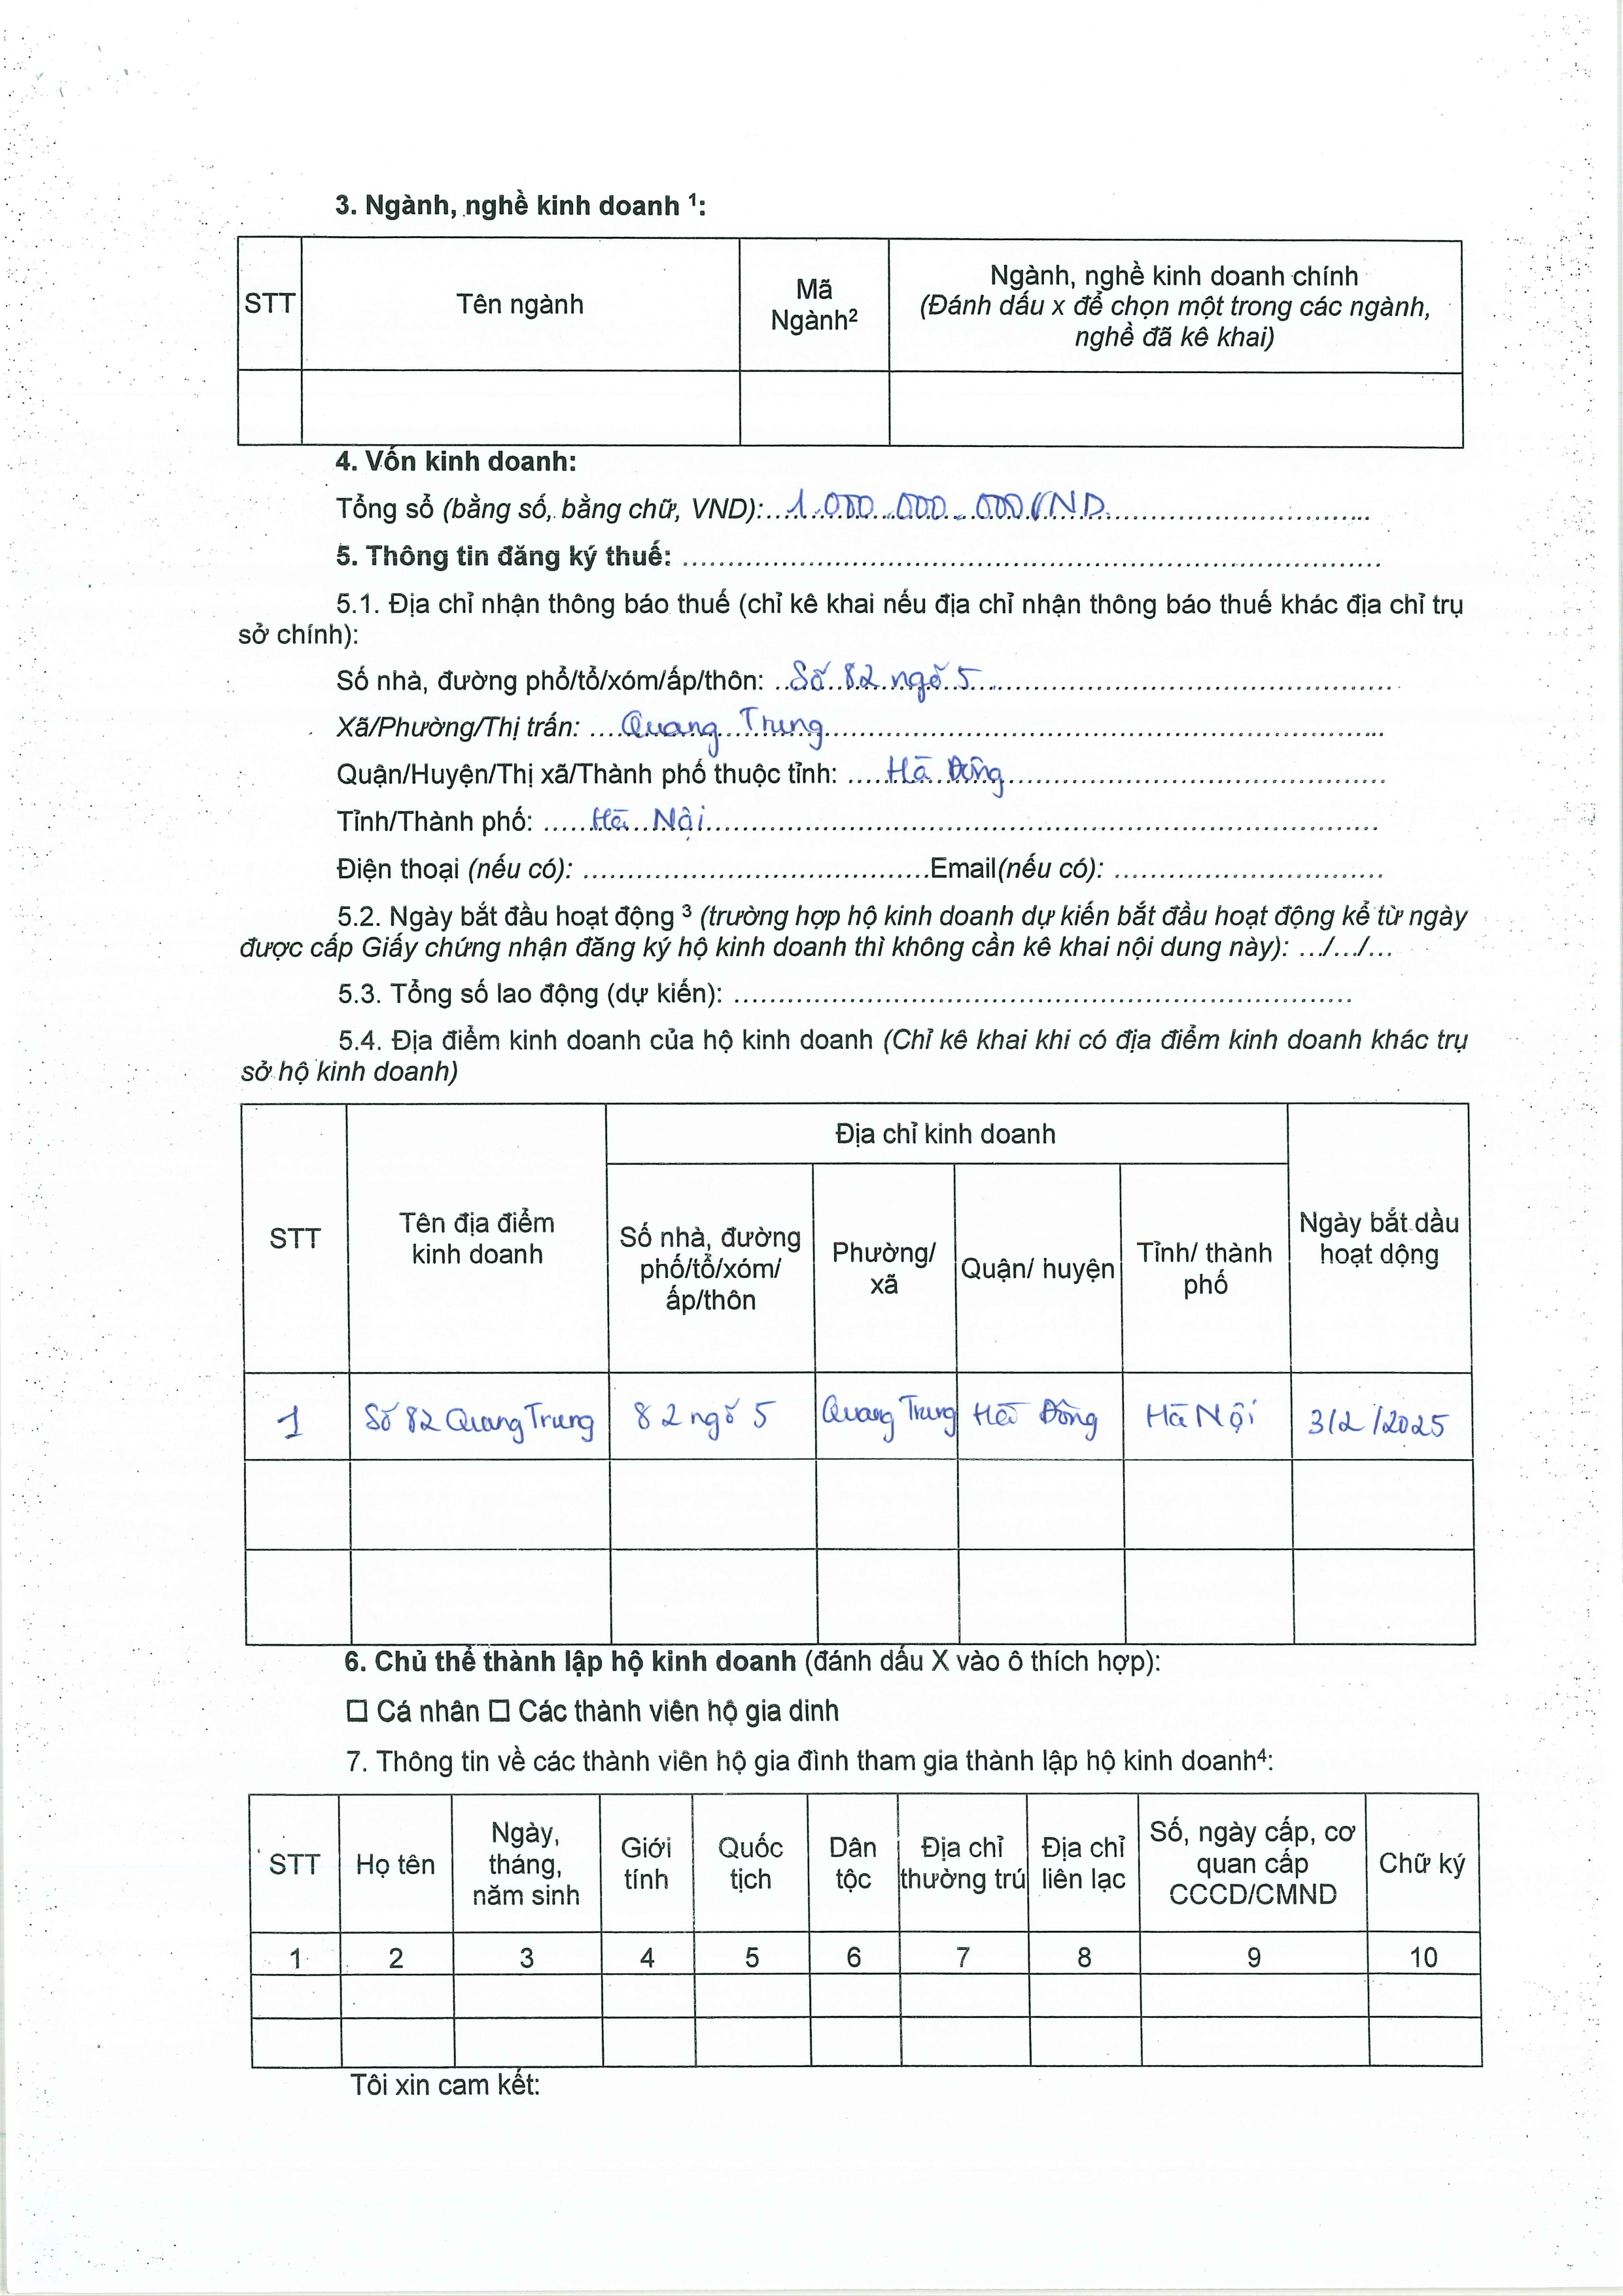 3. Ngành, nghề kinh doanh ¹:
STT
Tên ngành
Mã
Ngành²
Ngành, nghề kinh doanh chính
(Đánh dấu x để chọn một trong các ngành,
nghề đã kê khai)
4. Vốn kinh doanh:
Tổng sổ (bằng số, bằng chữ, VND):....1.000.000.000 VND..............................
5. Thông tin đăng ký thuế: ..............................................................................
5.1. Địa chỉ nhận thông báo thuế (chỉ kê khai nếu địa chỉ nhận thông báo thuế khác địa chỉ trụ
sở chính):
Số nhà, đường phổ/tổ/xóm/ấp/thôn: ..Số 82 ngõ 5..............................................
Xã/Phường/Thị trấn: ....Quang Trung..............................................................
Quận/Huyện/Thị xã/Thành phố thuộc tỉnh: .....Hà Đông..........................................
Tỉnh/Thành phố: ......Hà Nội...........................................................................
Điện thoại (nếu có): .......................................Email(nếu có): ..............................
5.2. Ngày bắt đầu hoạt động ³ (trường hợp hộ kinh doanh dự kiến bắt đầu hoạt động kể từ ngày
được cấp Giấy chứng nhận đăng ký hộ kinh doanh thì không cần kê khai nội dung này): .../.../...
5.3. Tổng số lao động (dự kiến): .....................................................................
5.4. Địa điểm kinh doanh của hộ kinh doanh (Chỉ kê khai khi có địa điểm kinh doanh khác trụ
sở hộ kinh doanh)
STT
Tên địa điểm
kinh doanh
Địa chỉ kinh doanh
Số nhà, đường
phố/tổ/xóm/
ấp/thôn
Phường/
xã
Quận/ huyện
Tỉnh/ thành
phố
Ngày bắt dầu
hoạt động
1
Số 82 Quang Trung
82 ngõ 5
Quang Trung
Hà Đông
Hà Nội
3/2/2025
6. Chủ thể thành lập hộ kinh doanh (đánh dấu X vào ô thích hợp):
☐ Cá nhân ☐ Các thành viên hộ gia dinh
7. Thông tin về các thành viên hộ gia đình tham gia thành lập hộ kinh doanh⁴:
STT
Họ tên
Ngày,
tháng,
năm sinh
Giới
tính
Quốc
tịch
Dân
tộc
Địa chỉ
thường trú
Địa chỉ
liên lạc
Số, ngày cấp, cơ
quan cấp
CCCD/CMND
Chữ ký
1 2 3 4 5 6 7 8 9 10
Tôi xin cam kết: